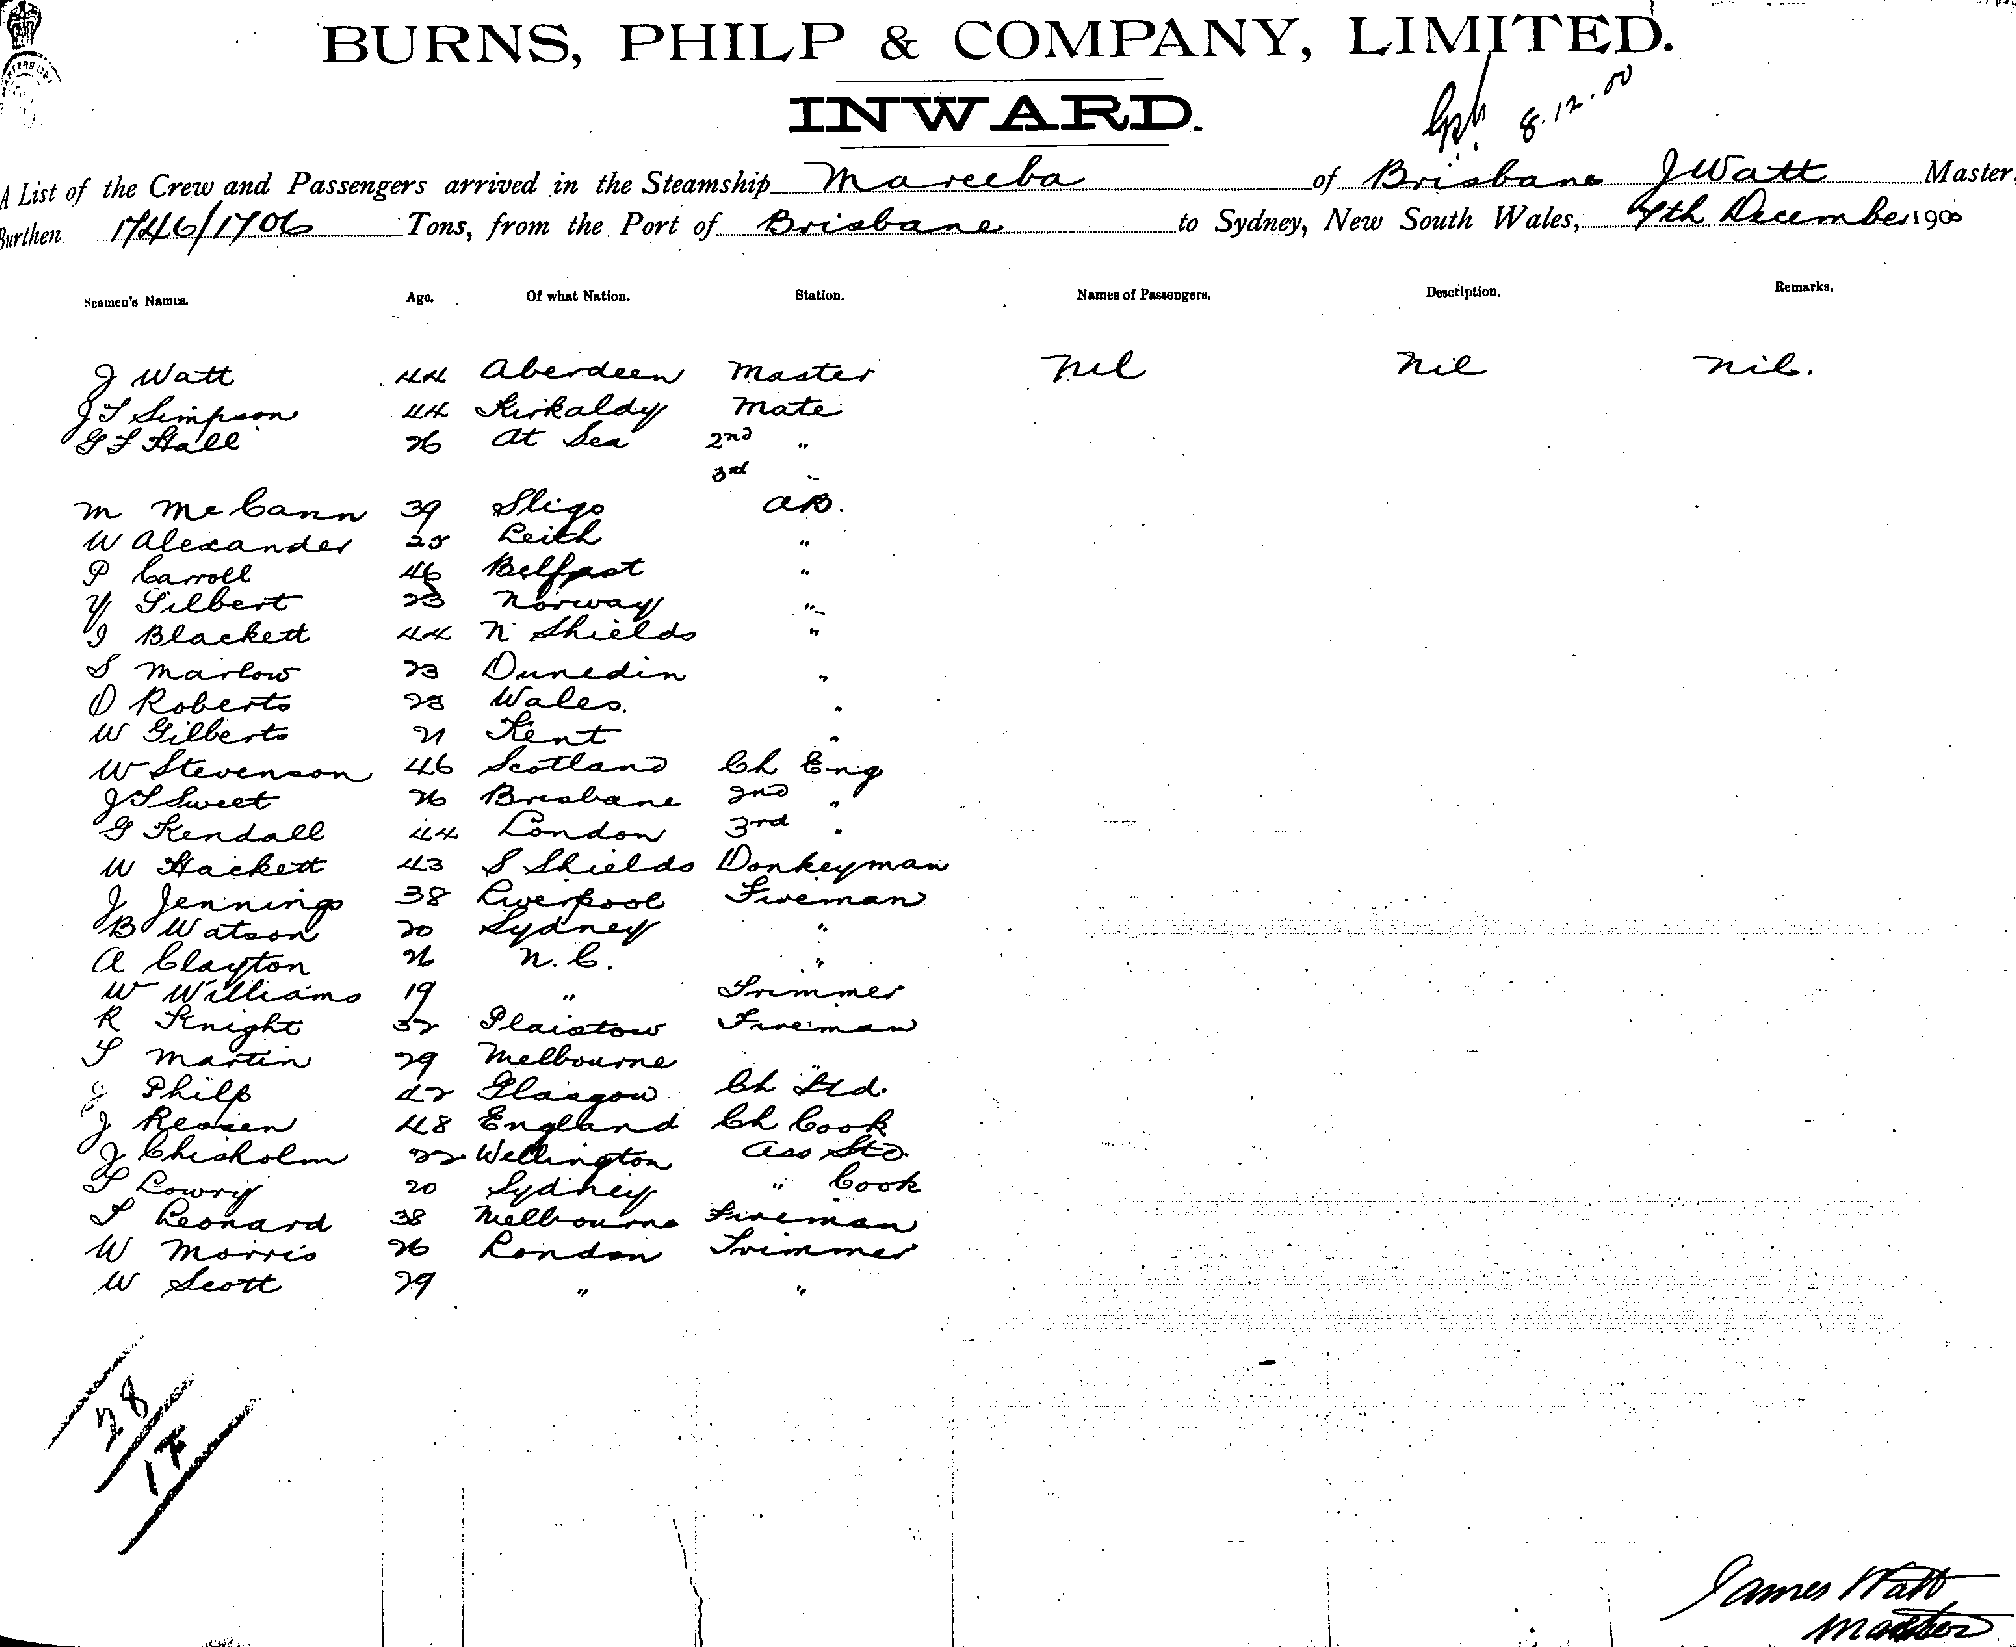 BURNS, PHILP & COMPANY, LIMITED.
INWARD.
8.12.00
A List of the Crew and Passengers arrived in the Steamship Mareeba of Brisbane J Watt Master,
Burthen 1746/1706 Tons, from the Port of Brisbane to Sydney, New South Wales, 7th December 1900
Seamen's Names. Age. Of what Nation. Station. Names of Passengers. Description. Remarks.
J Watt 44 Aberdeen Master Nil Nil Nil.
J T Simpson 44 Kirkaldy Mate
G F Hall 26 At Sea 2nd "
3rd "
M McCann 39 Sligo AB.
W Alexander 25 Leith "
P Carroll 46 Belfast "
Y Gilbert 23 Norway "
J Blackett 44 N Shields "
S Marlow 23 Dunedin "
O Roberts 23 Wales. "
W Gilberts 21 Kent "
W Stevenson 46 Scotland Ch Eng
J T Sweet 26 Brisbane 2nd "
G Kendall 44 London 3rd "
W Hackett 43 S Shields Donkeyman
J Jennings 38 Liverpool Fireman
B Watson 20 Sydney "
A Clayton 26 N.C. "
W Williams 19 " Trimmer
R Knight 32 Plaistow Fireman
T Martin 29 Melbourne "
J Philp 42 Glasgow Ch Std.
J Reasen 48 England Ch Cook
J Chisholm 22 Wellington Ass Std.
T Lowry 20 Sydney " Cook
T Leonard 38 Melbourne Fireman
W Morris 26 London Trimmer
W Scott 29 " "
28
James Watt
Master